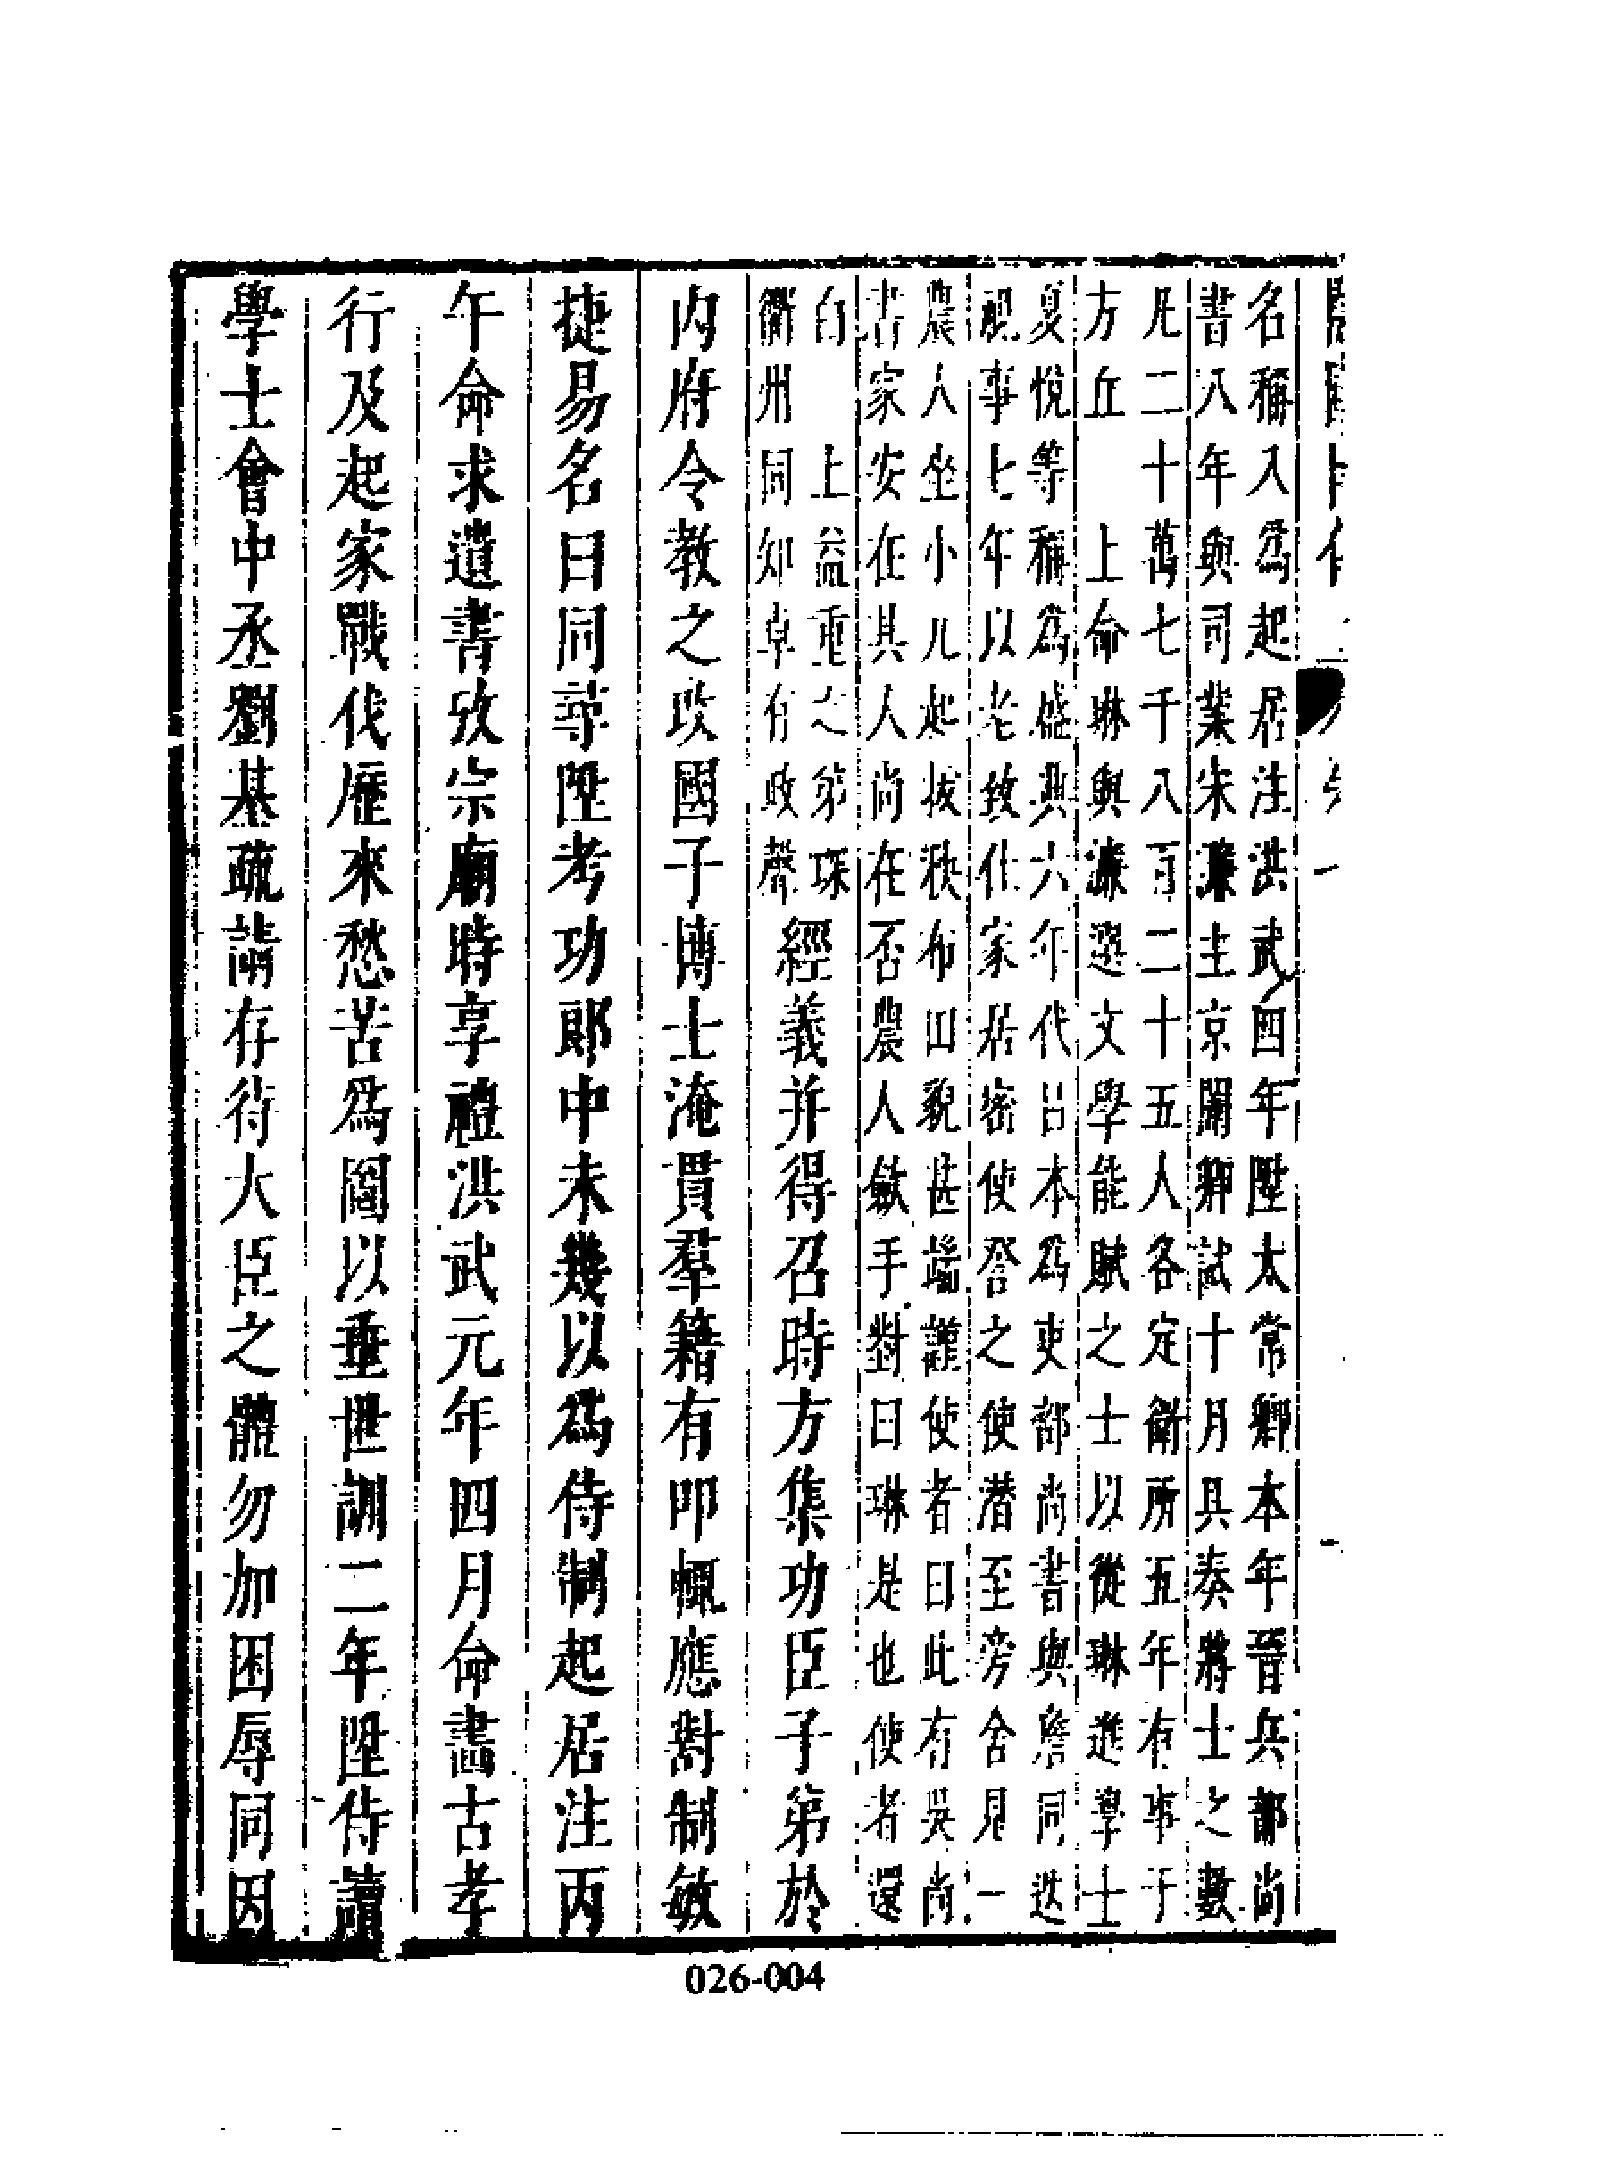 名稱入爲起居注洪武四年陞太常卿本年晉兵部尚
書八年與司業宋濂主京闈鄉試十月具奏將士之數
凡二十萬七千八百二十五人各定衛所五年有事于
方丘　上命琳與濂選文學能賦之士以從琳進學士
夏悅等稱爲盛典六年代呂本爲吏部尚書與詹同迭
視事七年以老致仕家居密使詧之使潛至旁舍見一
農人坐小几起拔秧布田貌甚端謹使者曰此有吳尚
書家安在其人尚在否農人斂手對曰琳是也使者還
白　上益重之弟琛
衢州同知卓有政聲
經義并得召時方集功臣子弟於
內府令教之改國子博士淹貫羣籍有叩輒應對制敏
捷易名曰同尋陞考功郎中未幾以爲侍制起居注丙
午命求遺書攷宗廟時享禮洪武元年四月命畫古孝
行及起家戰伐歷來愁苦爲圖以垂世訓二年陞侍讀
學士會中丞劉基疏請存待大臣之體勿加困辱同因
026-004